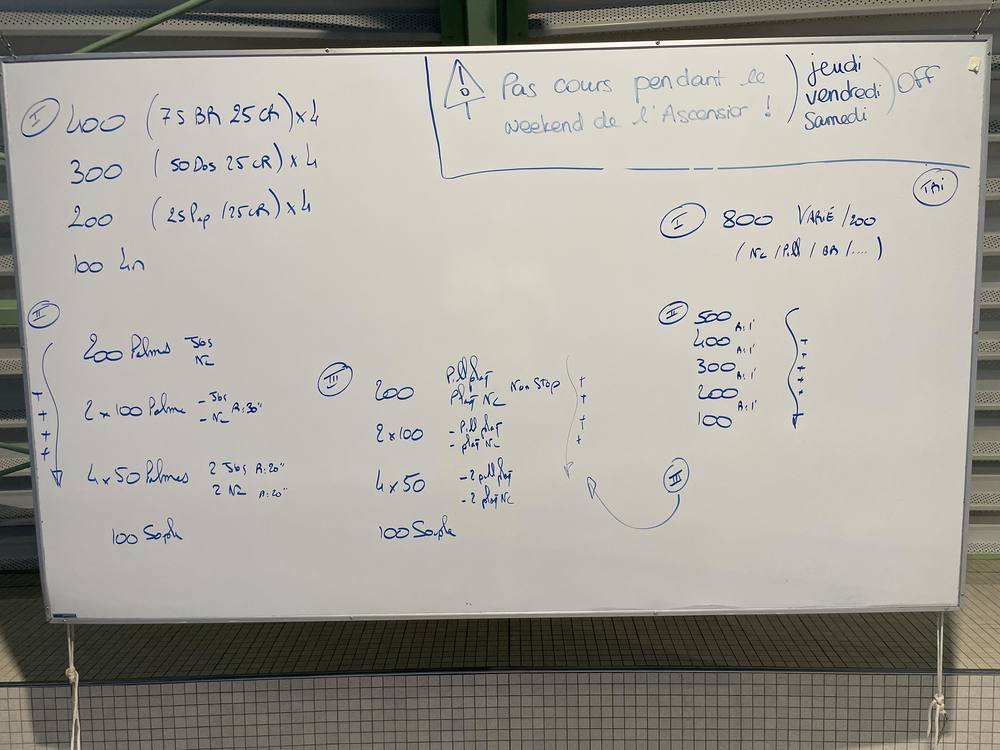 Pas cours pendant le
weekend de l'Ascension !
jeudi
vendredi
Samedi
Off
I
400 (75 BR 25 CR) x 4
300 (50 Dos 25 CR) x 4
200 (25 Pap / 25 CR) x 4
100 4n
II
200 Palmes Jbs
NL
2 x 100 Palme - Jbs
- NL R: 30"
4 x 50 Palmes 2 Jbs R: 20"
2 NL R: 20"
100 Souple
+ + + +
III
200 Pull plaq
plaq NL Non Stop
2 x 100 - Pull plaq
- plaq NL
4 x 50 - 2 pull plaq
- 2 plaq NL
100 Souple
+ + + +
TRI
I 800 VARIÉ /200
(NL / Pull / BR / ....)
II 500
R: 1'
400
R: 1'
300
R: 1'
200
R: 1'
100
+ + + + + +
III